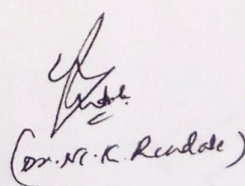 (Dr. N. K. Rendale)